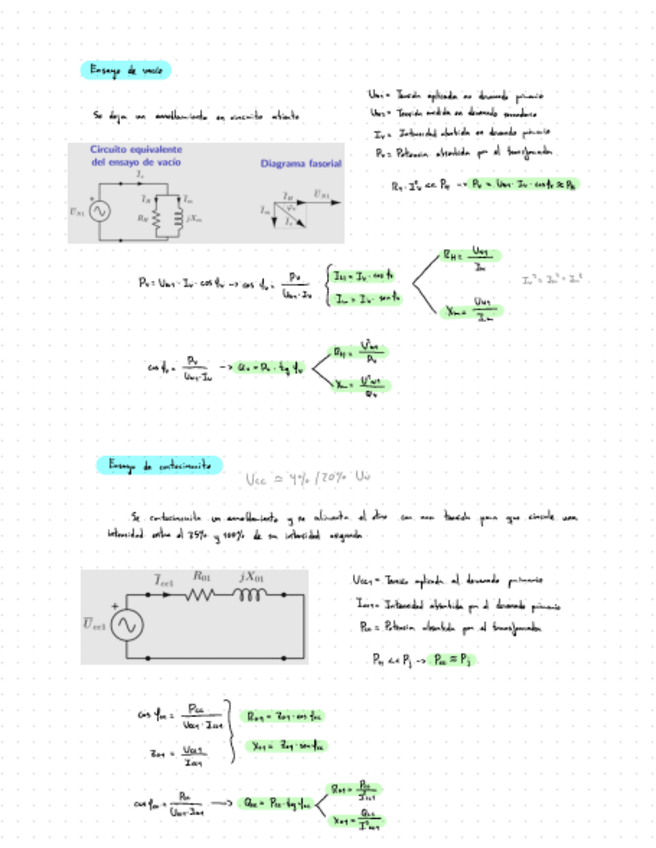 Ensayo de vacío
Se deja un arrollamiento en circuito abierto
U_N1 = Tensión aplicada en devanado primario
U_N2 = Tensión medida en devanado secundario
I_v = Intensidad absorbida en devanado primario
P_v = Potencia absorbida por el transformador
R_1 · I_v² << P_H → P_v = U_N1 · I_v · cos φ_v ≈ P_H
Circuito equivalente
del ensayo de vacío
Diagrama fasorial
P_v = U_N1 · I_v · cos φ_v → cos φ_v = P_v / (U_N1 · I_v)
I_H = I_v · cos φ_v
I_m = I_v · sen φ_v
R_H = U_N1 / I_H
X_m = U_N1 / I_m
cos φ_v = P_v / (U_N1 · I_v) → Q_v = P_v · tg φ_v
R_H = U²_N1 / P_v
X_m = U²_N1 / Q_v
Ensayo de cortocircuito
U_cc ≃ 4% / 20% U_N
Se cortocircuita un arrollamiento y se alimenta el otro con una tensión para que circule una
intensidad entre el 25% y 100% de su intensidad asignada
I_cc1 R_01 jX_01
U_cc1
U_cc1 = Tensión aplicada al devanado primario
I_cc1 = Intensidad absorbida por el devanado primario
P_cc = Potencia absorbida por el transformador
P_H << P_j → P_cc ≅ P_j
cos φ_cc = P_cc / (U_cc1 · I_cc1)
Z_01 = U_cc1 / I_cc1
R_01 = Z_01 · cos φ_cc
X_01 = Z_01 · sen φ_cc
cos φ_cc = P_cc / (U_cc1 · I_cc1) → Q_cc = P_cc · tg φ_cc
R_01 = P_cc / I²_cc1
X_01 = Q_cc / I²_cc1